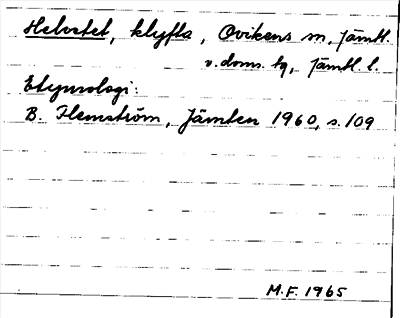 Helvetet, klyfta, Ovikens sn, Jämtl.
v. doms. hg, Jämtl. l.
Etymologi:
B. Flemström, Jämten 1960, s. 109
M.F. 1965